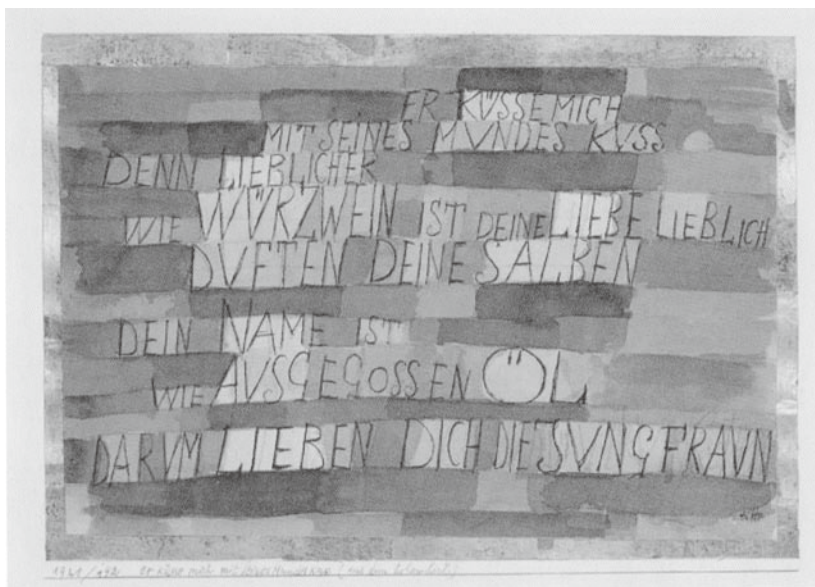 ER KÜSSE MICH
MIT SEINES MVNDES KVSS
DENN LIEBLICHER
WIE WÜRZWEIN IST DEINE LIEBE LIEBLICH
DVFTEN DEINE SALBEN
DEIN NAME IST
WIE AVSGEGOSSEN ÖL
DARVM LIEBEN DICH DIE JVNGFRAVN
er küsse mich mit seines Mundes Kuss